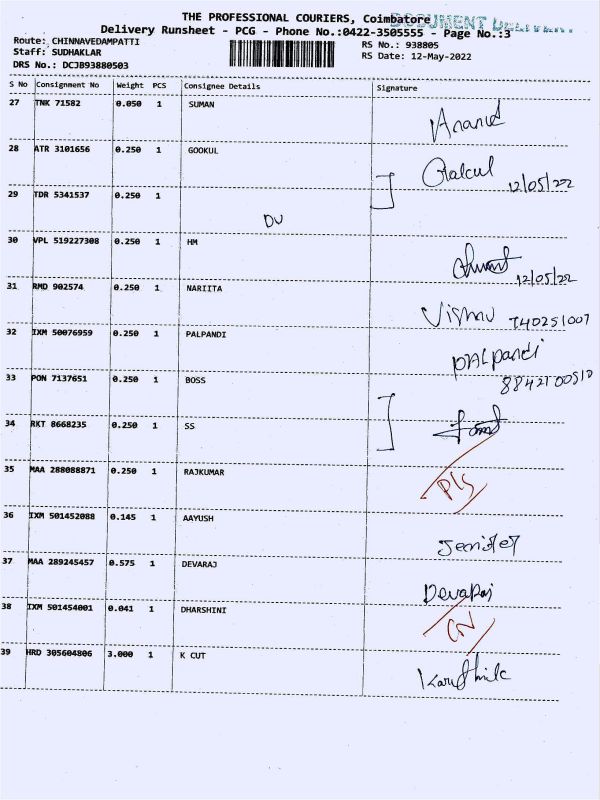 THE PROFESSIONAL COURIERS, Coimbatore
DOCUMENT DELIVERY
Delivery Runsheet - PCG - Phone No.:0422-3505555 - Page No.:3
Route: CHINNAVEDAMPATTI RS No.: 938805
Staff: SUDHAKLAR RS Date: 12-May-2022
DRS No.: DCJB93880503
S No Consignment No Weight PCS Consignee Details Signature
27 TNK 71582 0.050 1 SUMAN Anand
28 ATR 3101656 0.250 1 GOOKUL
12/05/22
29 TDR 5341537 0.250 1
DU
30 VPL 519227308 0.250 1 HM
12/05/22
31 RMD 902574 0.250 1 NARIITA
Vishnu 740251007
32 IXM 50076959 0.250 1 PALPANDI
PALpandi
33 PON 7137651 0.250 1 BOSS
34 RKT 8668235 0.250 1 SS
35 MAA 288088871 0.250 1 RAJKUMAR
36 IXM 501452088 0.145 1 AAYUSH
Jenifer
37 MAA 289245457 0.575 1 DEVARAJ
Devaraj
38 IXM 501454001 0.041 1 DHARSHINI
39 HRD 305604806 3.000 1 K CUT
Karthik